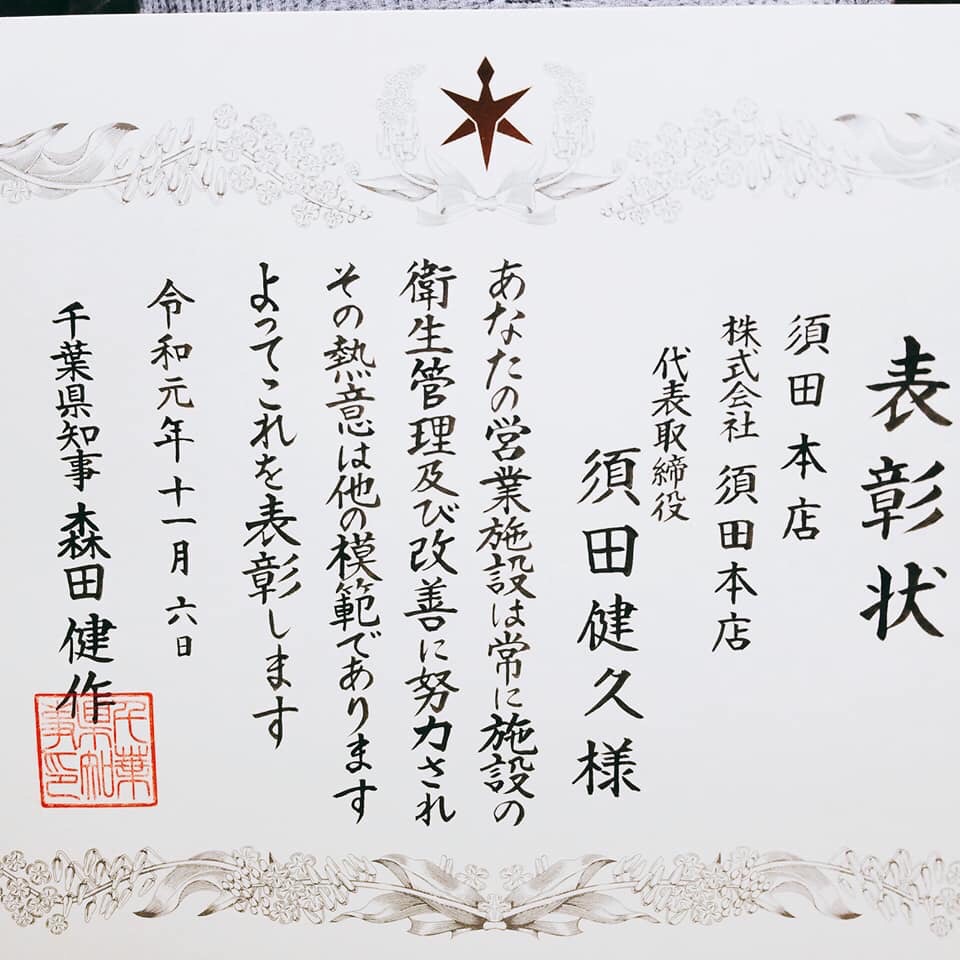 表彰状
須田本店
株式会社 須田本店
代表取締役
須田健久様
あなたの営業施設は常に施設の
衛生管理及び改善に努力され
その熱意は他の模範であります
よってこれを表彰します
令和元年十一月六日
千葉県知事 森田健作
千葉県知事印